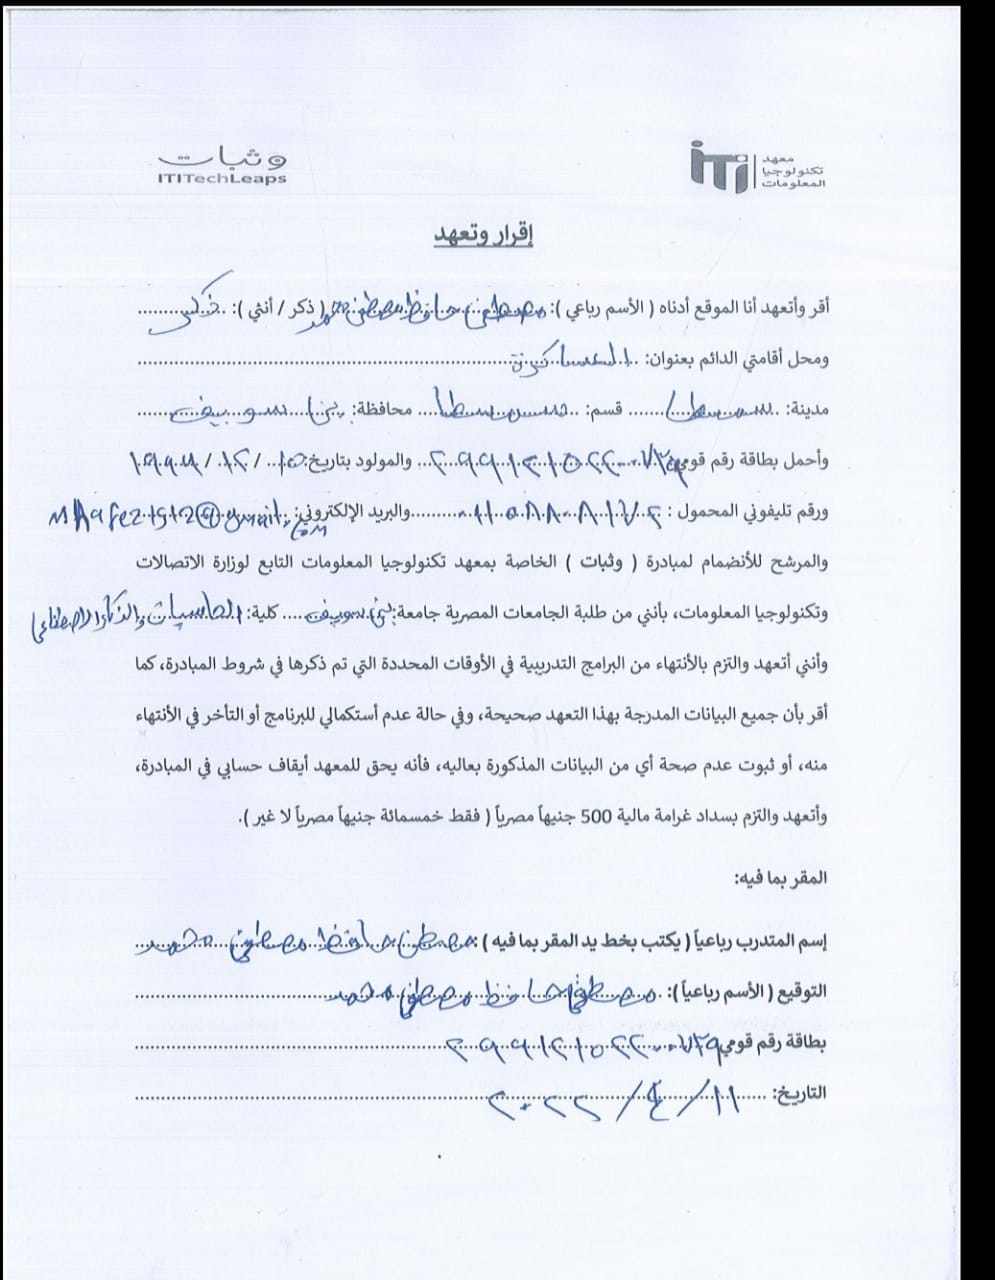 وثبات
ITITechLeaps
iTi
معهد
تكنولوجيا
المعلومات
إقرار وتعهد
أقر وأتعهد أنا الموقع أدناه ( الأسم رباعي ): مصطفى حافظ مصطفى محمد ( ذكر / أنثي ): ذكر
ومحل أقامتي الدائم بعنوان: العساكرة
مدينة: سمسطا قسم: سمسطا محافظة: بني سويف
وأحمل بطاقة رقم قومي والمولود بتاريخ:
ورقم تليفوني المحمول : والبريد الإلكتروني:
والمرشح للأنضمام لمبادرة ( وثبات ) الخاصة بمعهد تكنولوجيا المعلومات التابع لوزارة الاتصالات
وتكنولوجيا المعلومات، بأنني من طلبة الجامعات المصرية جامعة: بني سويف كلية: الحاسبات والذكاء الاصطناعي
وأنني أتعهد والتزم بالأنتهاء من البرامج التدريبية في الأوقات المحددة التي تم ذكرها في شروط المبادرة، كما
أقر بأن جميع البيانات المدرجة بهذا التعهد صحيحة، وفي حالة عدم أستكمالي للبرنامج أو التأخر في الأنتهاء
منه، أو ثبوت عدم صحة أي من البيانات المذكورة بعاليه، فأنه يحق للمعهد أيقاف حسابي في المبادرة،
وأتعهد والتزم بسداد غرامة مالية 500 جنيهاً مصرياً ( فقط خمسمائة جنيهاً مصرياً لا غير ).
المقر بما فيه:
إسم المتدرب رباعياً ( يكتب بخط يد المقر بما فيه ): مصطفى حافظ مصطفى محمد
التوقيع ( الأسم رباعياً ): مصطفى حافظ مصطفى محمد
بطاقة رقم قومي
التاريخ: ١١/٤/٢٠٢٢